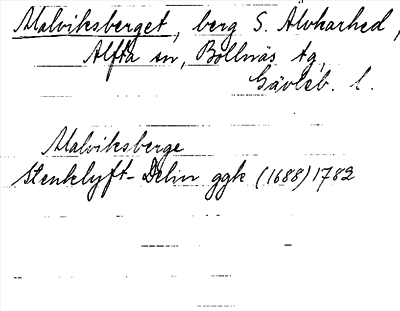 Malviksberget, berg S. Älvkarhed,
Alfta sn, Bollnäs tg,
Gävleb. l.
Malviksberge
Stenklyft-Delin ggk (1688) 1782